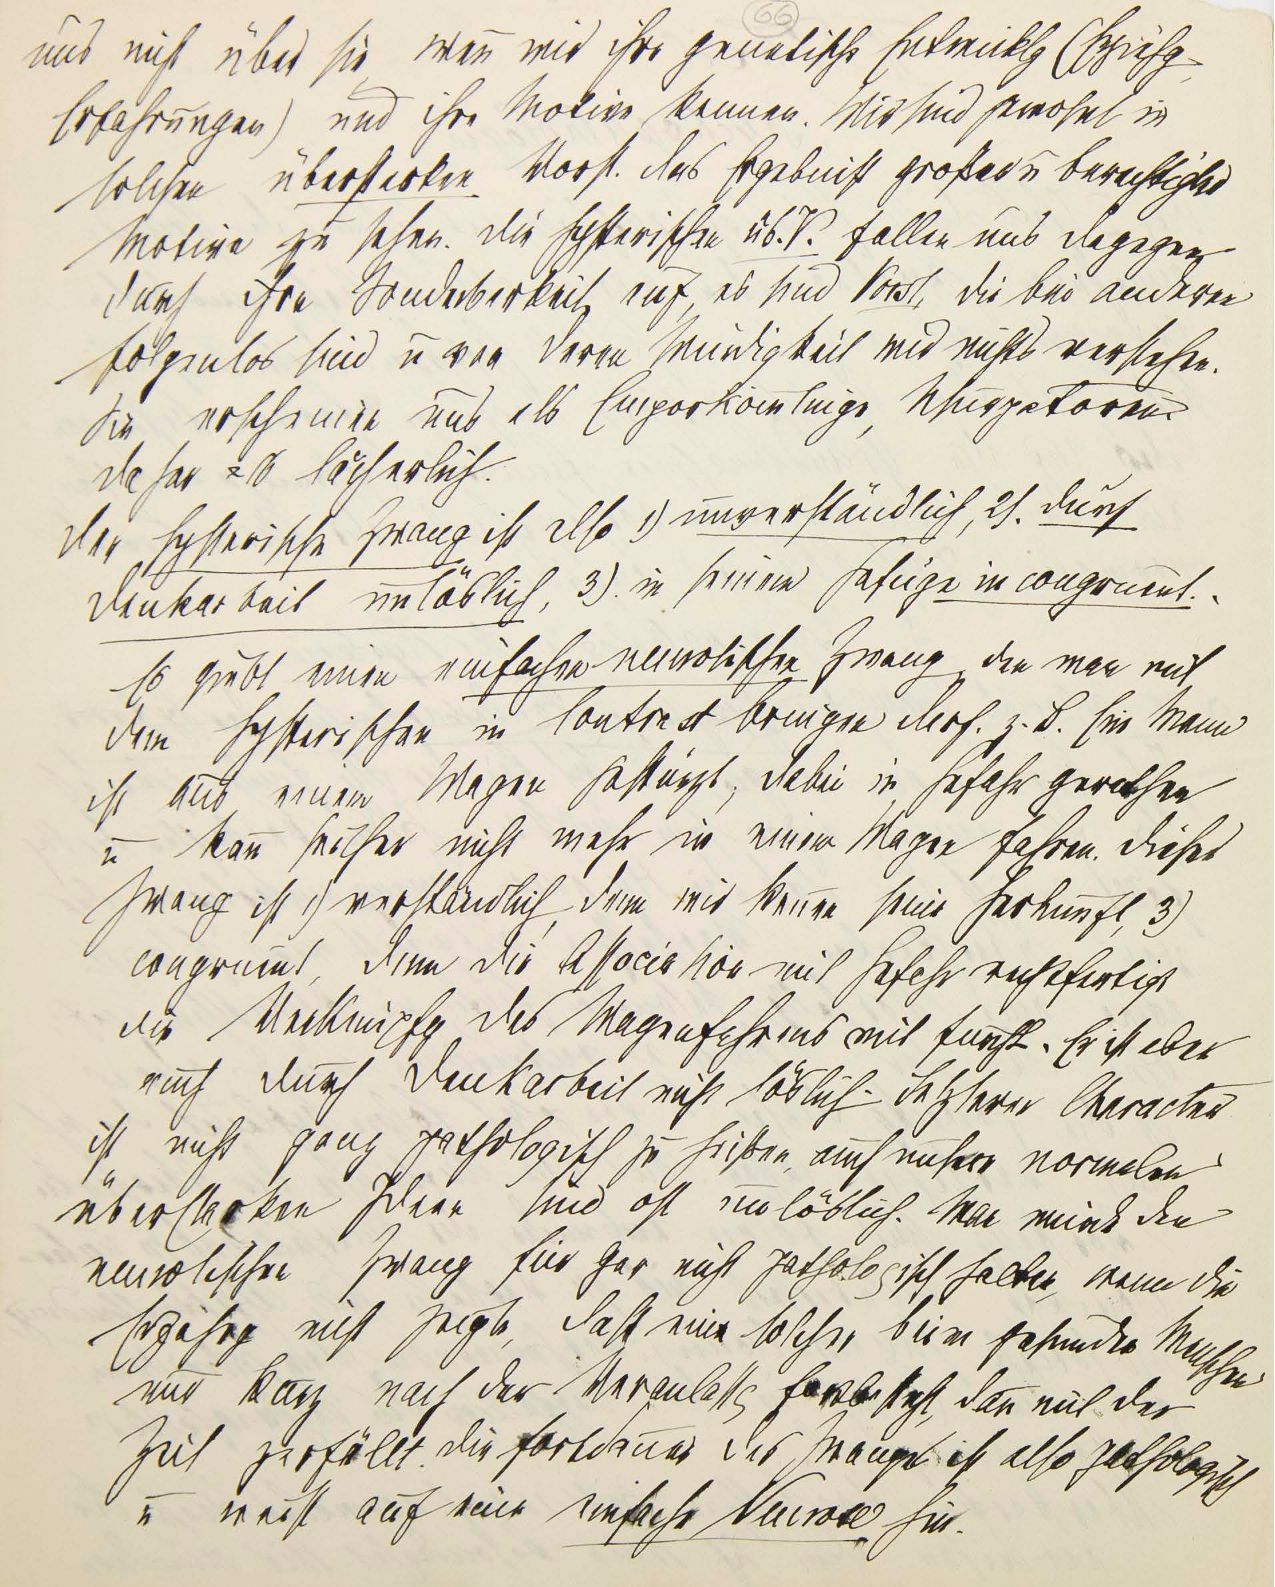 66
uns nicht über sie, wenn wir ihre genetische Entwicklg (Erziehg,
Erfahrungen) und ihre Motive kennen. Wir sind gewohnt in
solchen überstarken Vorst. das Ergebniß großer u berechtigter
Motive zu sehen. Die hysterischen üb.V. fallen uns dagegen
durch ihre Sonderbarkeit auf, es sind Vorst, die bei anderen
folgenlos sind u von deren Würdigkeit wir nichts verstehen.
Sie erscheinen uns als Emporkömmlinge, Usurpatoren
daher als lächerlich.
Der hysterische Zwang ist also 1) unverständlich, 2). durch
Denkarbeit unlöslich, 3). in seinem Gefüge incongruent.
Es giebt einen einfachen neurotischen Zwang, den man mit
dem hysterischen in Contrast bringen darf. z.B. Ein Mann
ist aus einem Wagen gestürzt, dabei in Gefahr gerathen
u kann seither nicht mehr in einem Wagen fahren. Dieser
Zwang ist 1) verständlich, denn wir kennen seine Herkunft, 3)
congruent, denn die Association mit Gefahr rechtfertigt
die Verknüpfg des Wagenfahrens mit Furcht. Er ist aber
auch durch Denkarbeit nicht löslich. Letzterer Character
ist nicht ganz pathologisch zu heißen, auch unsere normalen
überstarken Ideen sind oft unlöslich. Man würde den
neurotischen Zwang für gar nicht pathologisch halten, wenn die
Erfahrg nicht zeigte, daß eine solcher beim gesunden Menschen
nur kurz nach der Veranlassg fortbesteht, dann mit der
Zeit zerfällt. Die Fortdauer des Zwanges ist also pathologisch
u weist auf eine einfache Neurose hin.